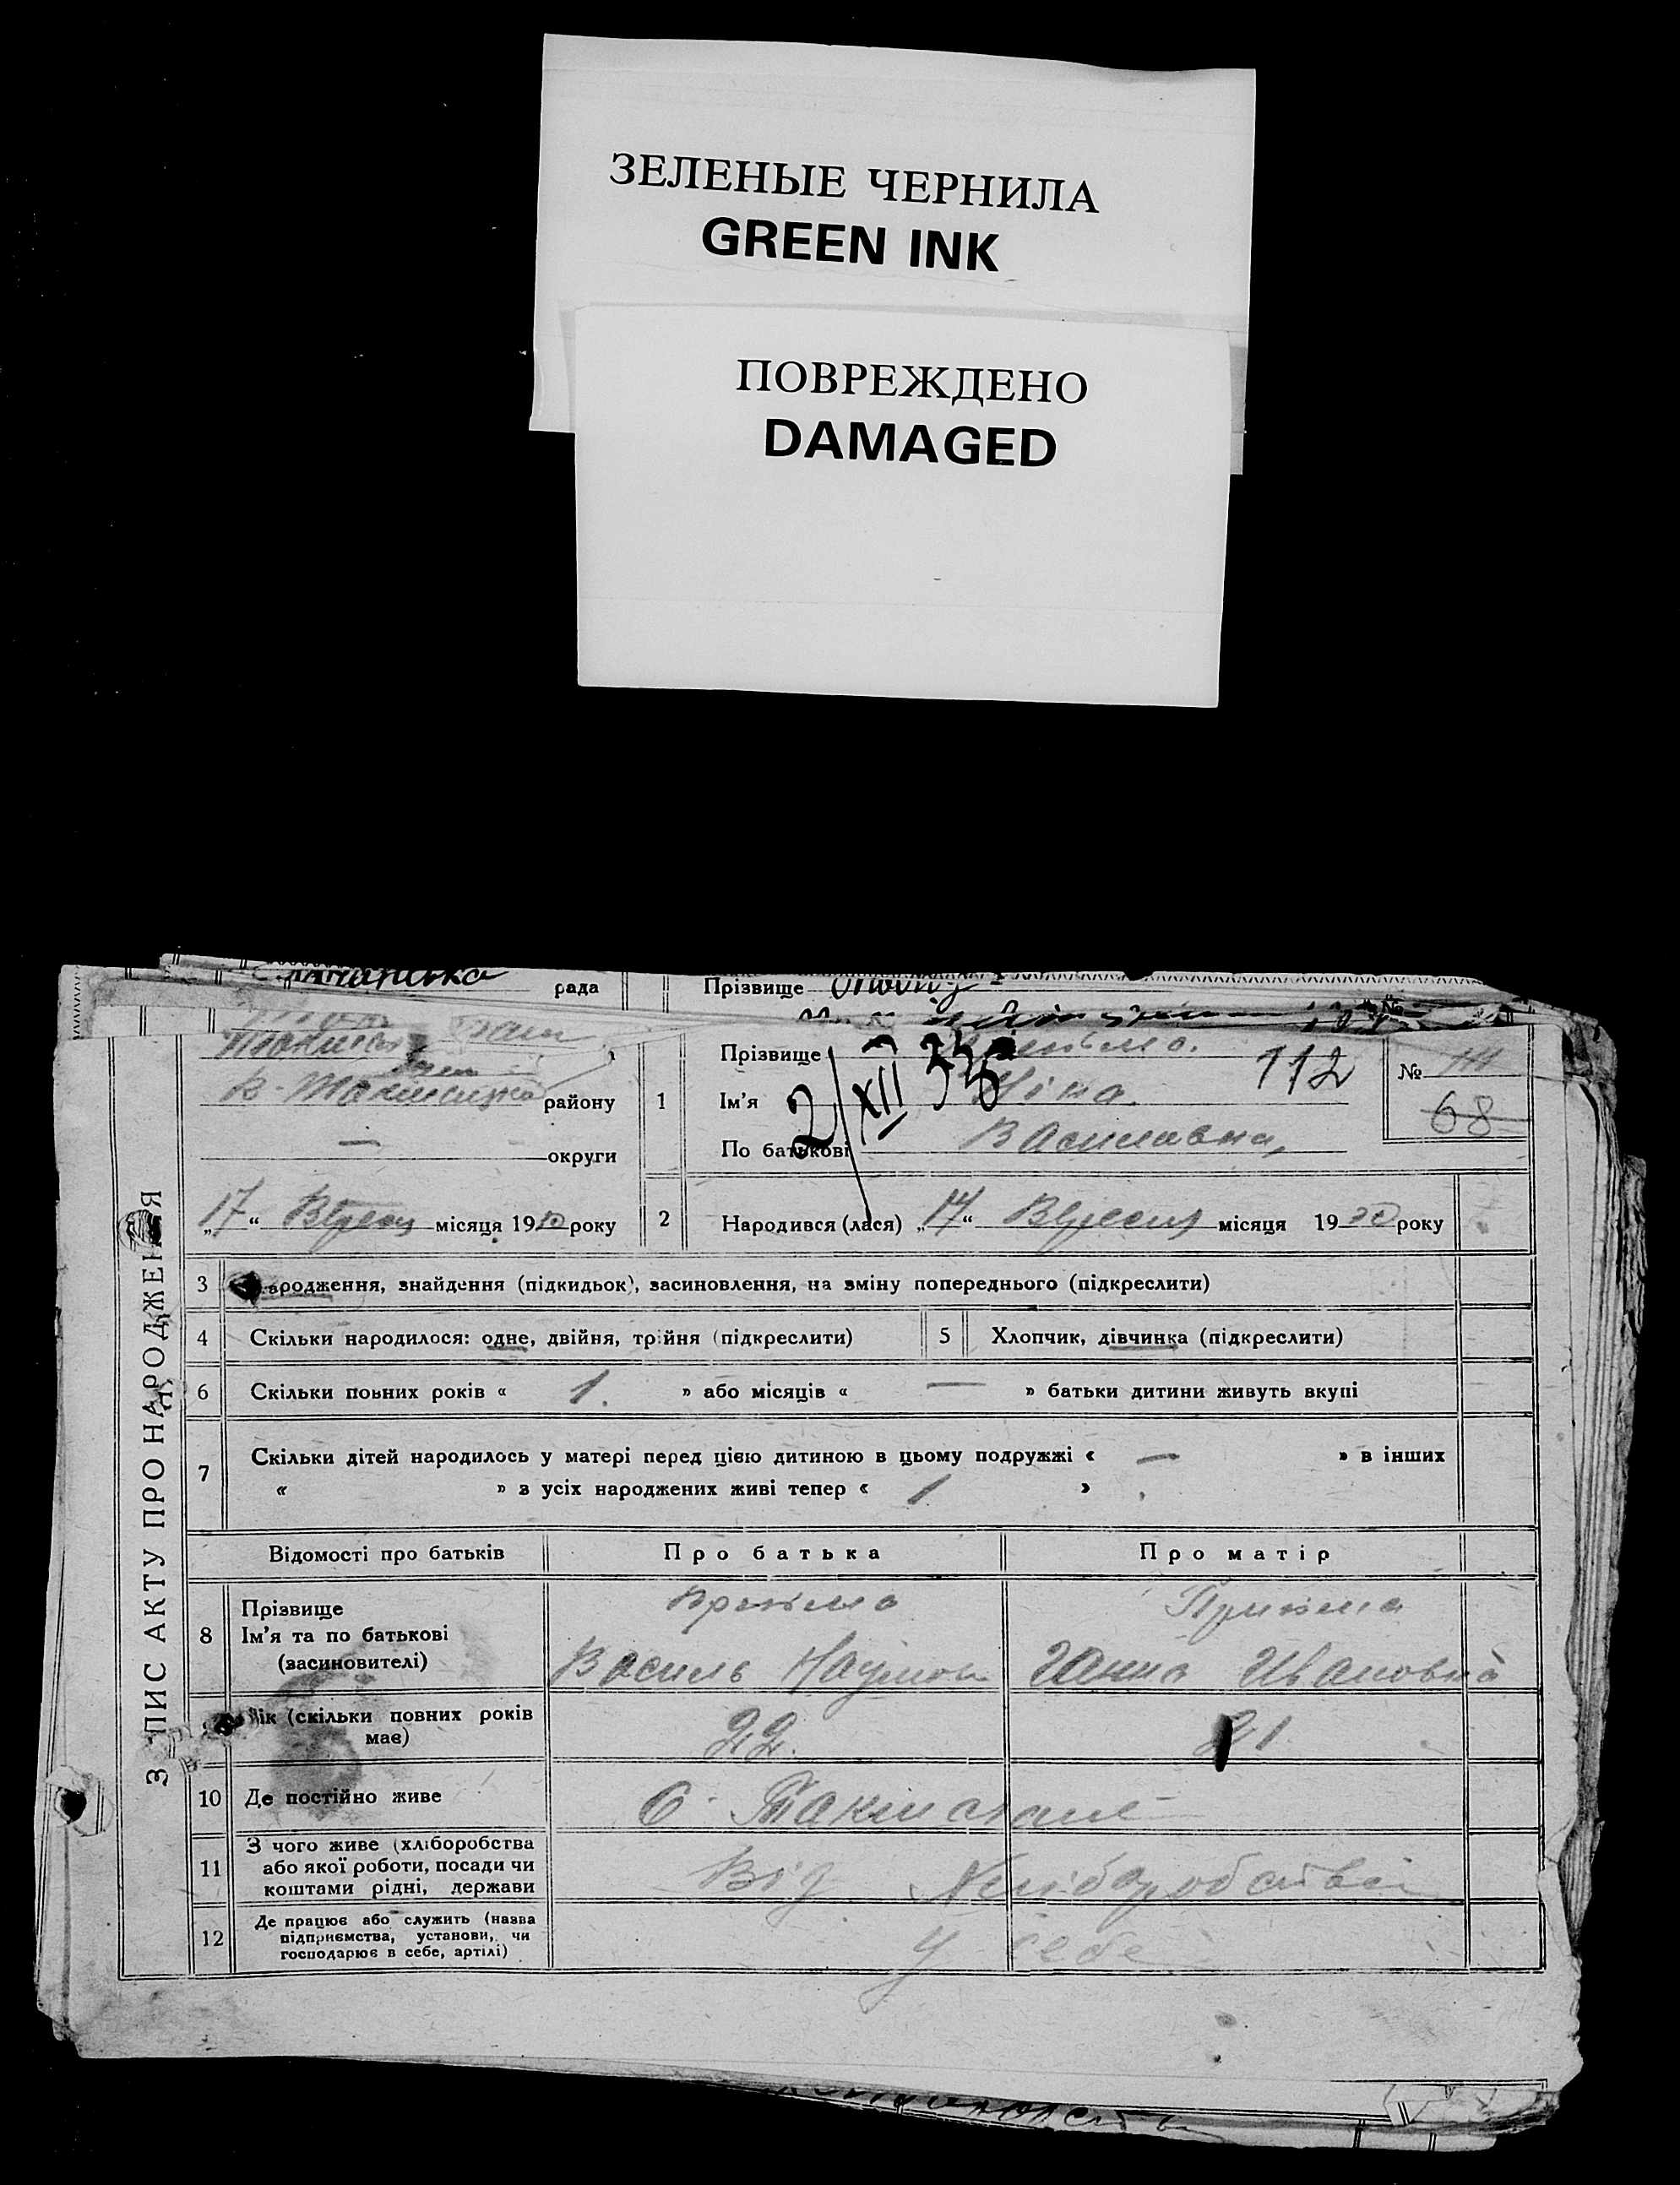 ЗЕЛЕНЫЕ ЧЕРНИЛА
GREEN INK
ПОВРЕЖДЕНО
DAMAGED
рада
Прізвище
№
ЗАПИС АКТУ ПРО НАРОДЖЕННЯ
району
округи
„17“ місяця 1930 року
1
Прізвище
Ім'я Ніна.
По батькові Василивна,
2/XII 33
112
№ 111
68
2 Народився (лася) „14“ місяця 1930 року
3 Народження, знайдення (підкидьок), засиновлення, на зміну попереднього (підкреслити)
4 Скільки народилося: одне, двійня, трійня (підкреслити)
5 Хлопчик, дівчинка (підкреслити)
6 Скільки повних років « 1. » або місяців « — » батьки дитини живуть вкупі
7 Скільки дітей народилось у матері перед цією дитиною в цьому подружжі « — » в інших
« » з усіх народжених живі тепер « 1 »
Відомості про батьків
Про батька
Про матір
8 Прізвище
Ім'я та по батькові
(засиновителі)
Василь Наумов
Ганна Ивановна
Вік (скільки повних років
має)
22.
21
10 Де постійно живе
С.
11 З чого живе (хліборобства
або якої роботи, посади чи
коштами рідні, держави
Від хліборобства
12 Де працює або служить (назва
підприємства, установи, чи
господарює в себе, артілі)
У себе